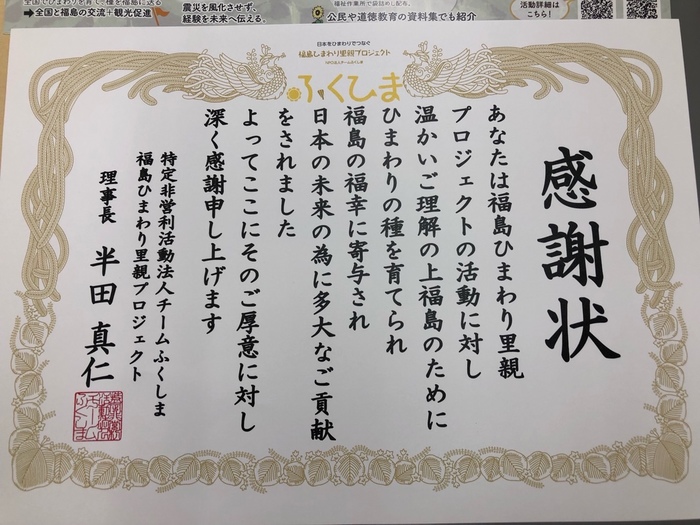 ➡全国と福島の交流+観光促進
震災を風化させず、
経験を未来へ伝える。
公民や道徳教育の資料集でも紹介
活動詳細は
こちら!
日本をひまわりでつなぐ
福島ひまわり里親プロジェクト
NPO法人チームふくしま
ふくひま
感謝状
あなたは福島ひまわり里親
プロジェクトの活動に対し
温かいご理解の上福島のために
ひまわりの種を育てられ
福島の福幸に寄与され
日本の未来の為に多大なご貢献
をされました
よってここにそのご厚意に対し
深く感謝申し上げます
特定非営利活動法人チームふくしま
福島ひまわり里親プロジェクト
理事長 半田真仁